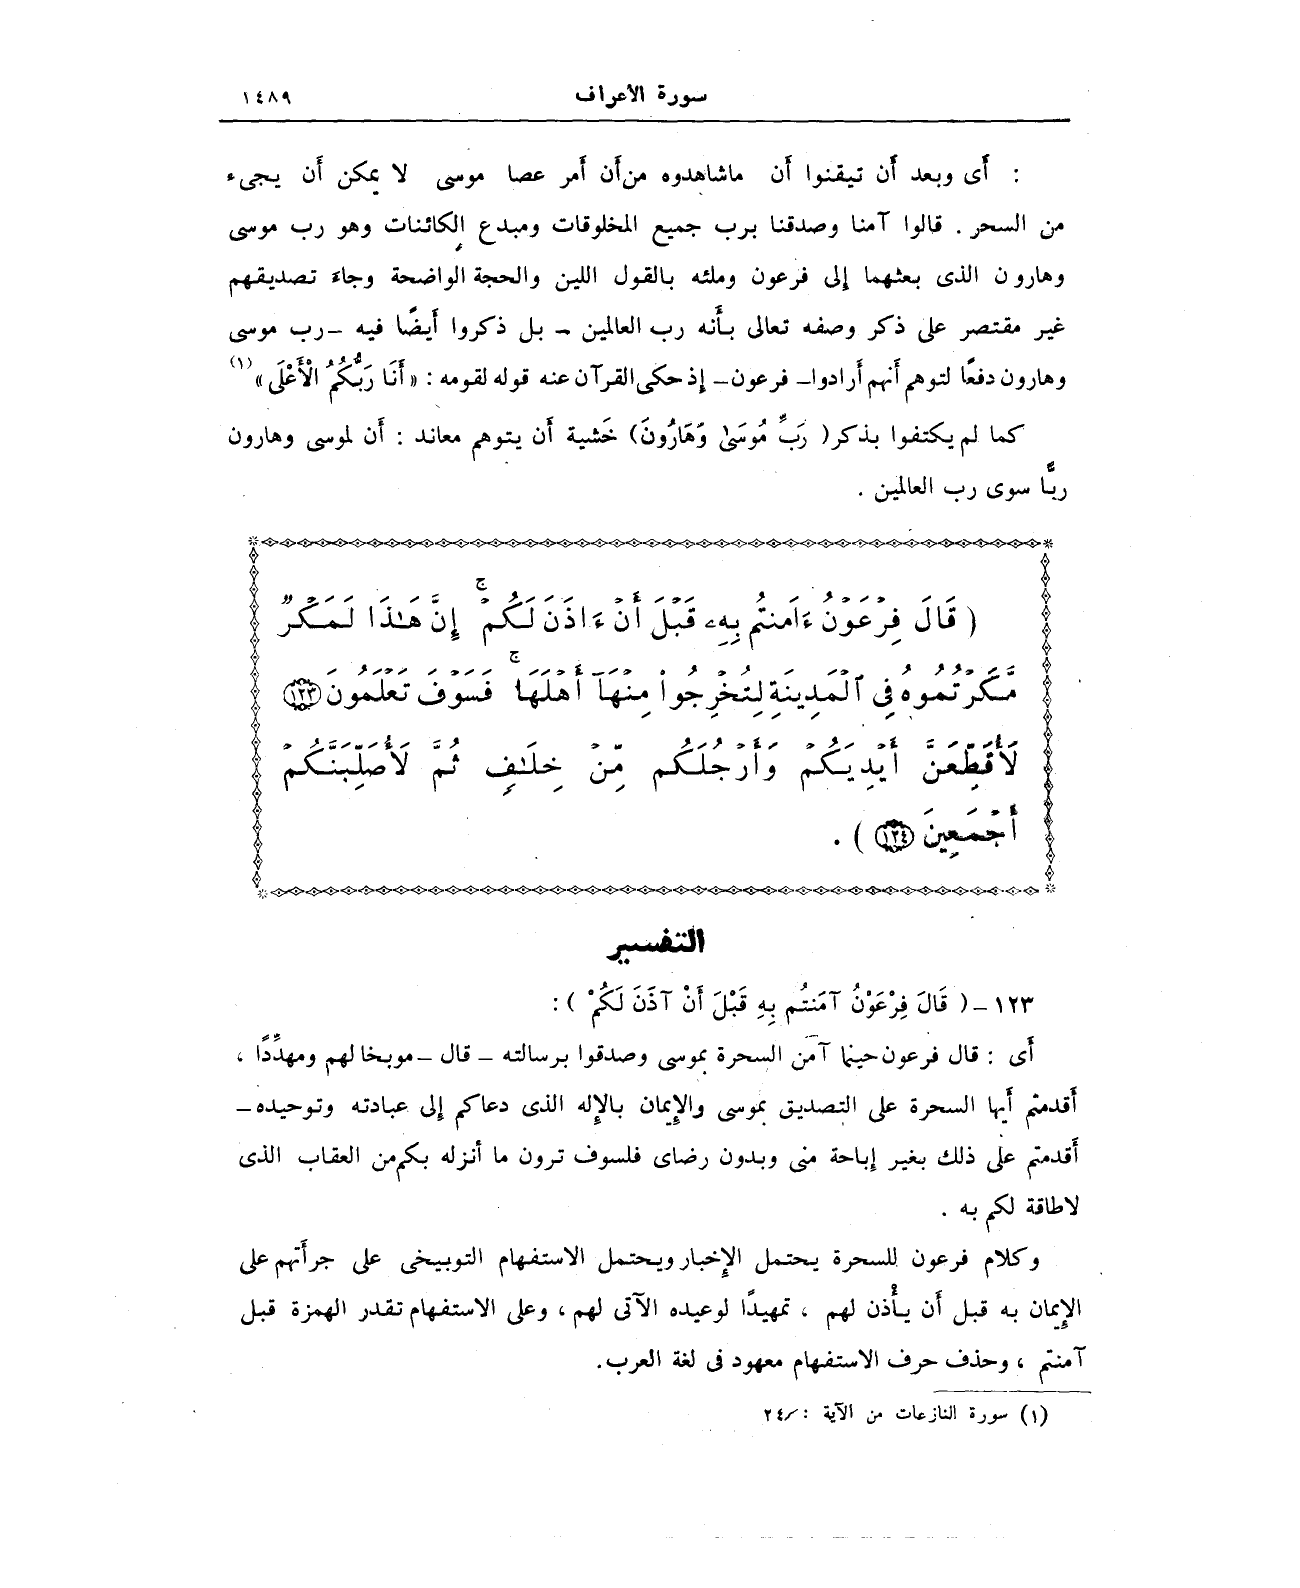 سورة الأعراف ١٤٨٩
: أى وبعد أن تيقنوا أن ماشاهدوه من أن أمر عصا موسى لا يمكن أن يجىء
من السحر . قالوا آمنا وصدقنا برب جميع المخلوقات ومبدع الكائنات وهو رب موسى
وهارون الذى بعثهما إلى فرعون وملئه بالقول اللين والحجة الواضحة وجاء تصديقهم
غير مقتصر على ذكر وصفه تعالى بأنه رب العالمين - بل ذكروا أيضًا فيه - رب موسى
وهارون دفعًا لتوهم أنهم أرادوا - فرعون - إذ حكى القرآن عنه قوله لقومه : « أَنَا رَبُّكُمُ الْأَعْلَى » (١)
كما لم يكتفوا بذكر ( رَبِّ مُوسَىٰ وَهَارُونَ ) خَشية أن يتوهم معاند : أن لموسى وهارون
ربًّا سوى رب العالمين .
( قَالَ فِرْعَوْنُ ءَامَنتُم بِهِۦ قَبْلَ أَنْ ءَاذَنَ لَكُمْ ۚ إِنَّ هَـٰذَا لَمَكْرٌ
مَّكَرْتُمُوهُ فِى ٱلْمَدِينَةِ لِتُخْرِجُوا۟ مِنْهَآ أَهْلَهَا ۚ فَسَوْفَ تَعْلَمُونَ ١٢٣
لَأُقَطِّعَنَّ أَيْدِيَكُمْ وَأَرْجُلَكُم مِّنْ خِلَـٰفٍ ثُمَّ لَأُصَلِّبَنَّكُمْ
أَجْمَعِينَ ١٢٤ ) .
التفسير
١٢٣ - ( قَالَ فِرْعَوْنُ آمَنتُم بِهِ قَبْلَ أَنْ آذَنَ لَكُمْ ) :
أى : قال فرعون حينما آمن السحرة بموسى وصدقوا برسالته - قال - موبخا لهم ومهدِّدًا ،
أقدمتم أيها السحرة على التصديق بموسى والإيمان بالإله الذى دعاكم إلى عبادته وتوحيده -
أقدمتم على ذلك بغير إباحة منى وبدون رضاى فلسوف ترون ما أنزله بكم من العقاب الذى
لاطاقة لكم به .
وكلام فرعون للسحرة يحتمل الإخبار ويحتمل الاستفهام التوبيخى على جرأتهم على
الإيمان به قبل أن يأْذن لهم ، تمهيدًا لوعيده الآتى لهم ، وعلى الاستفهام تقدر الهمزة قبل
آمنتم ، وحذف حرف الاستفهام معهود فى لغة العرب .
(١) سورة النازعات من الآية : / ٢٤